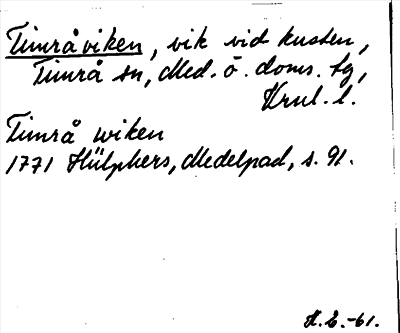 Timråviken, vik vid kusten,
Timrå sn, Med. ö. doms. tg,
Vrnl. l.
Timrå wiken
1771 Hülphers, Medelpad, s. 91.
H.E.-61.